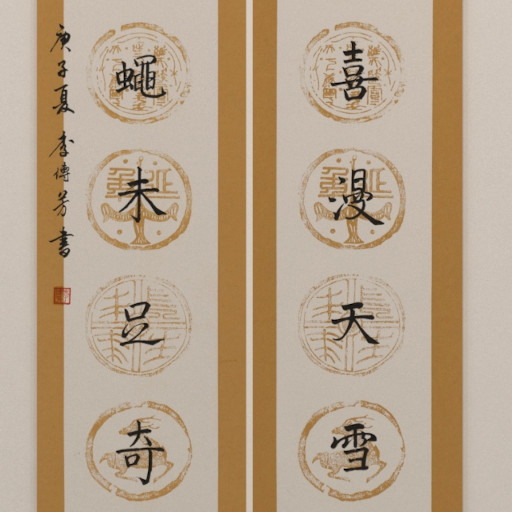 喜漫天雪
蠅未足奇
庚子夏 李傳芳書